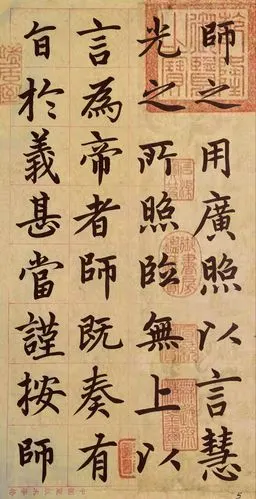 師之用廣照以言慧
光之所照臨無上以
言為帝者師既奏有
旨於義甚當謹按師
5